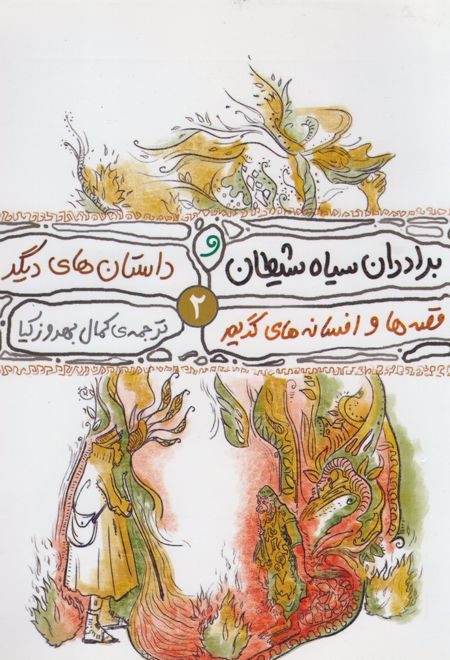 برادران سیاه شیطان و داستان‌های دیگر
۲
قصه‌ها و افسانه‌های گریم
ترجمه‌ی کمال بهروزکیا